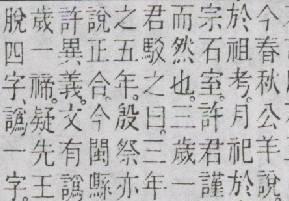 今春秋公羊說
於祖考。月祀於
宗石室。許君謹
而然也。三歲一
君駁之曰。三年
之五年。殷祭亦
說正合。今閩縣
許異義。文有譌
歲一禘。疑先王
脫四字、譌一字。